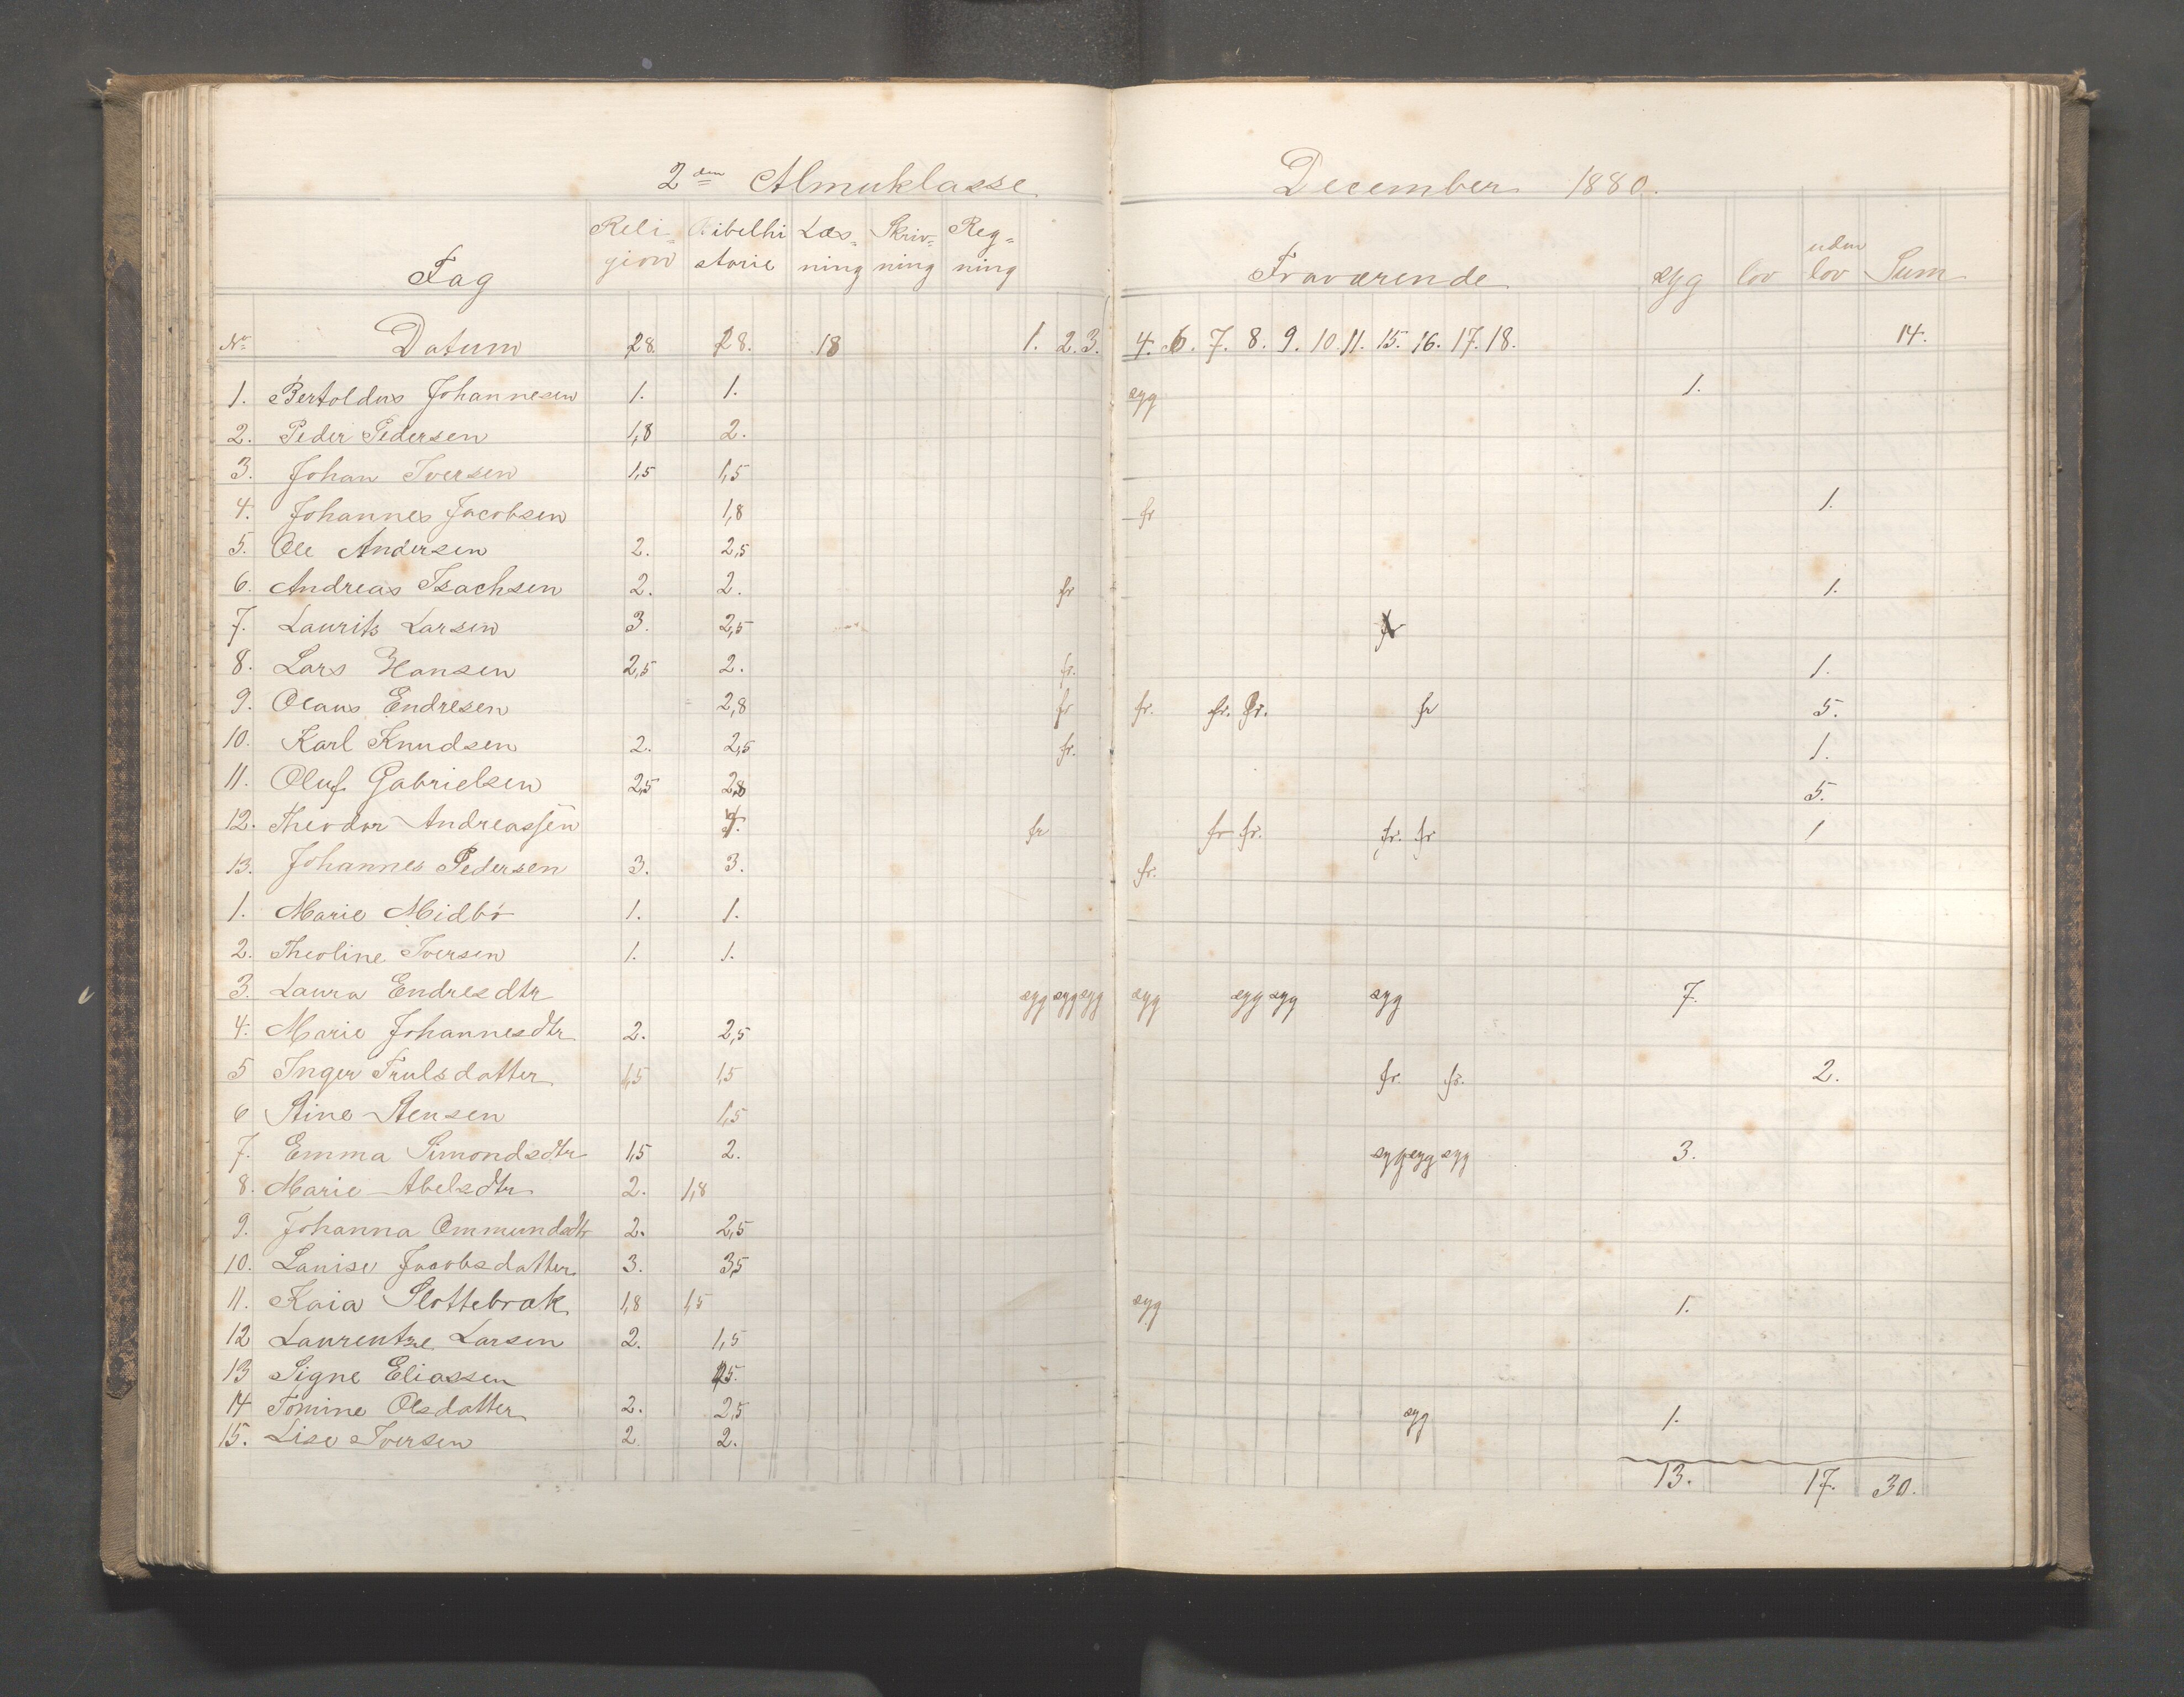 2den Almuklasse December 1880.
Fag Religion Bibelhistorie Læsning Skrivning Regning Fraværende syg lov uden lov Sum
No Datum 28. 28. 18 1. 2. 3. 4. 6. 7. 8. 9. 10. 11. 15. 16. 17. 18. 14.
1. Bertoldus Johannesen 1. 1. syg 1.
2. Peder Pedersen 1,8 2.
3. Johan Iversen 1,5 1,5
4. Johannes Jacobsen 1,8 fr 1.
5. Ole Andersen 2. 2,5
6. Andreas Isachsen 2. 2. fr 1.
7. Laurits Larsen 3. 2,5
8. Lars Hansen 2,5 2. fr. 1.
9. Olaus Endresen 2,8 fr fr. fr. fr. fr 5.
10. Karl Knudsen 2. 2,5 fr. 1.
11. Oluf Gabrielsen 2,5 2,8 5.
12. Theodor Andreassen fr fr fr. fr. fr 1
13. Johannes Pedersen 3. 3. fr.
1. Marie Midbö 1. 1.
2. Theoline Iversen 1. 1.
3. Laura Endresdtr syg syg syg syg syg syg syg 7.
4. Marie Johannesdtr 2. 2,5
5 Inger Trulsdatter 1,5 1,5 fr. fr. 2.
6 Stine Stensen 1,5
7. Emma Simondsdtr 1,5 2. syg syg syg 3.
8. Marie Abelsdtr 2. 1,8
9. Johanna Ommundsdtr 2. 2,5
10. Lanise Jacobsdatter 3. 3,5
11. Kaia Slottebrak 1,8 1,5 syg 1.
12 Laurentze Larsen 2. 1,5
13 Signe Eliassen
14 Tomine Olsdatter 2. 2,5 syg 1.
15. Lise Iversen 2. 2.
13. 17. 30.